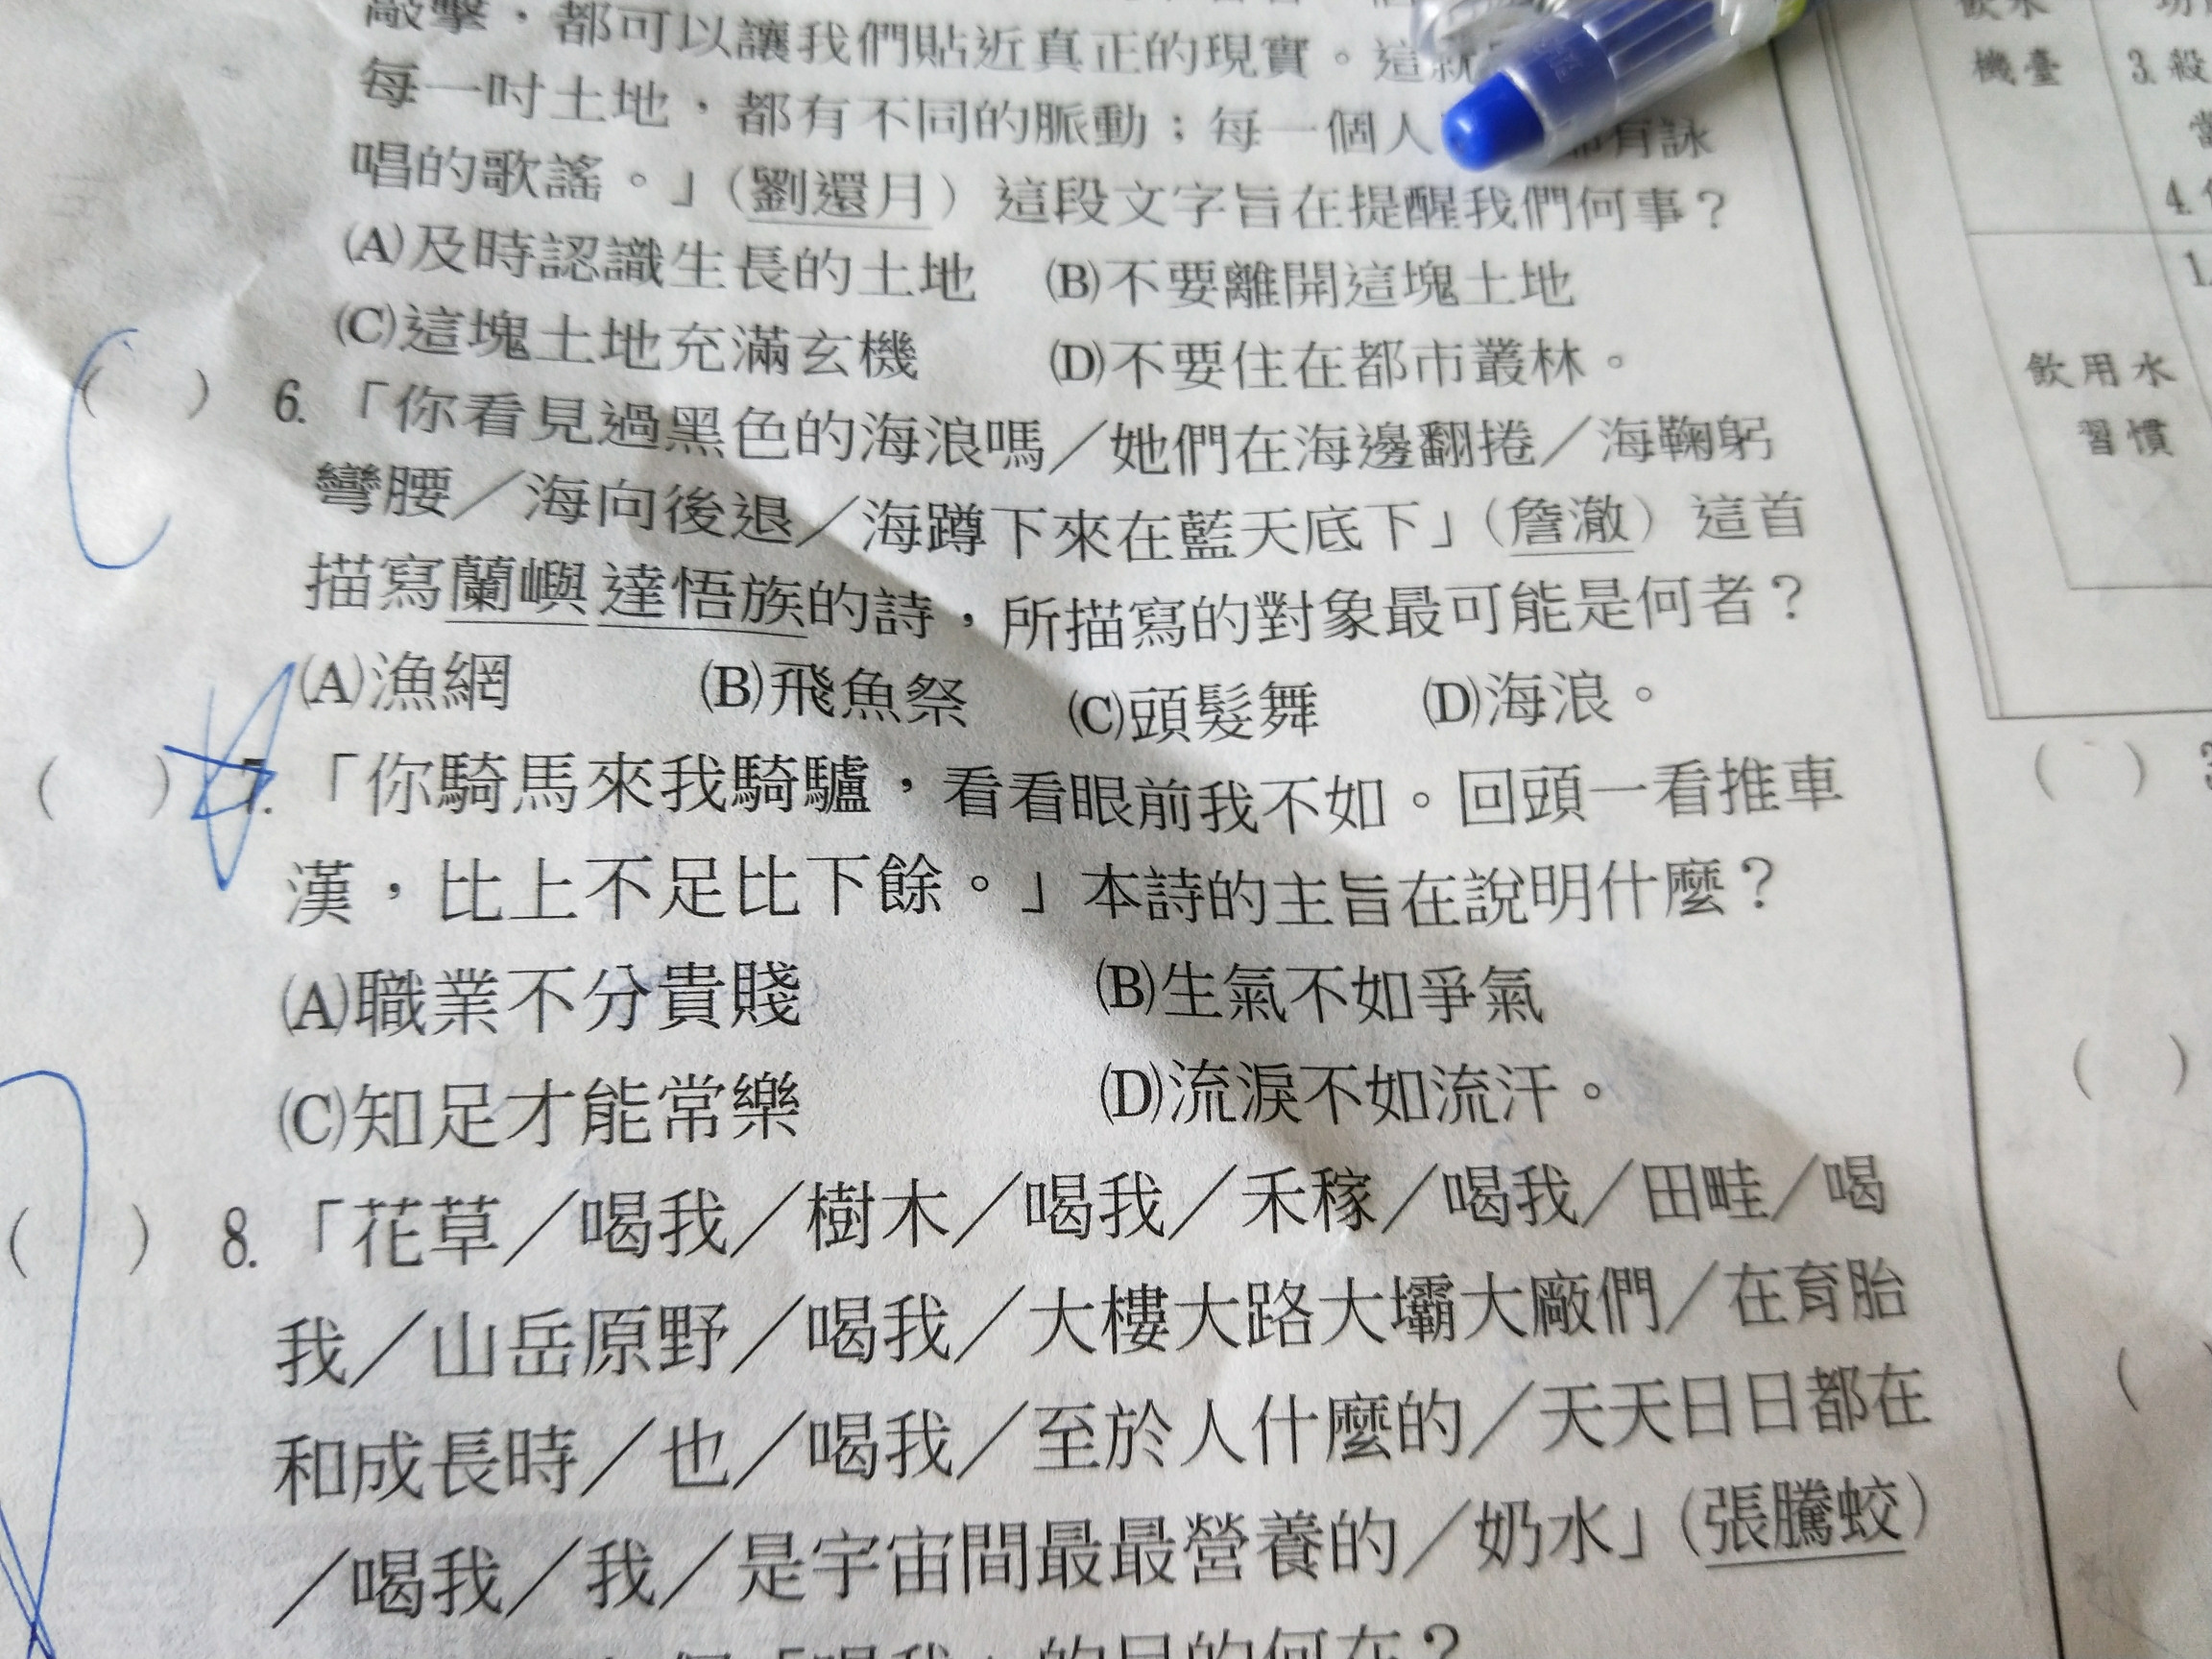 敲擊，都可以讓我們貼近真正的現實。這就
每一吋土地，都有不同的脈動；每一個人 都有詠
唱的歌謠。」（劉還月）這段文字旨在提醒我們何事？
(A)及時認識生長的土地 (B)不要離開這塊土地
(C)這塊土地充滿玄機 (D)不要住在都市叢林。
( ) 6. 「你看見過黑色的海浪嗎／她們在海邊翻捲／海鞠躬
彎腰／海向後退／海蹲下來在藍天底下」（詹澈）這首
描寫蘭嶼達悟族的詩，所描寫的對象最可能是何者？
(A)漁網 (B)飛魚祭 (C)頭髮舞 (D)海浪。
( ) 7. 「你騎馬來我騎驢，看看眼前我不如。回頭一看推車
漢，比上不足比下餘。」本詩的主旨在說明什麼？
(A)職業不分貴賤 (B)生氣不如爭氣
(C)知足才能常樂 (D)流淚不如流汗。
( ) 8. 「花草／喝我／樹木／喝我／禾稼／喝我／田畦／喝
我／山岳原野／喝我／大樓大路大壩大廠們／在育胎
和成長時／也／喝我／至於人什麼的／天天日日都在
／喝我／我／是宇宙間最最營養的／奶水」（張騰蛟）
個「喝我」的目的何在？
機臺
3.殺
4.
1.
飲用水
習慣
( )
( )
(